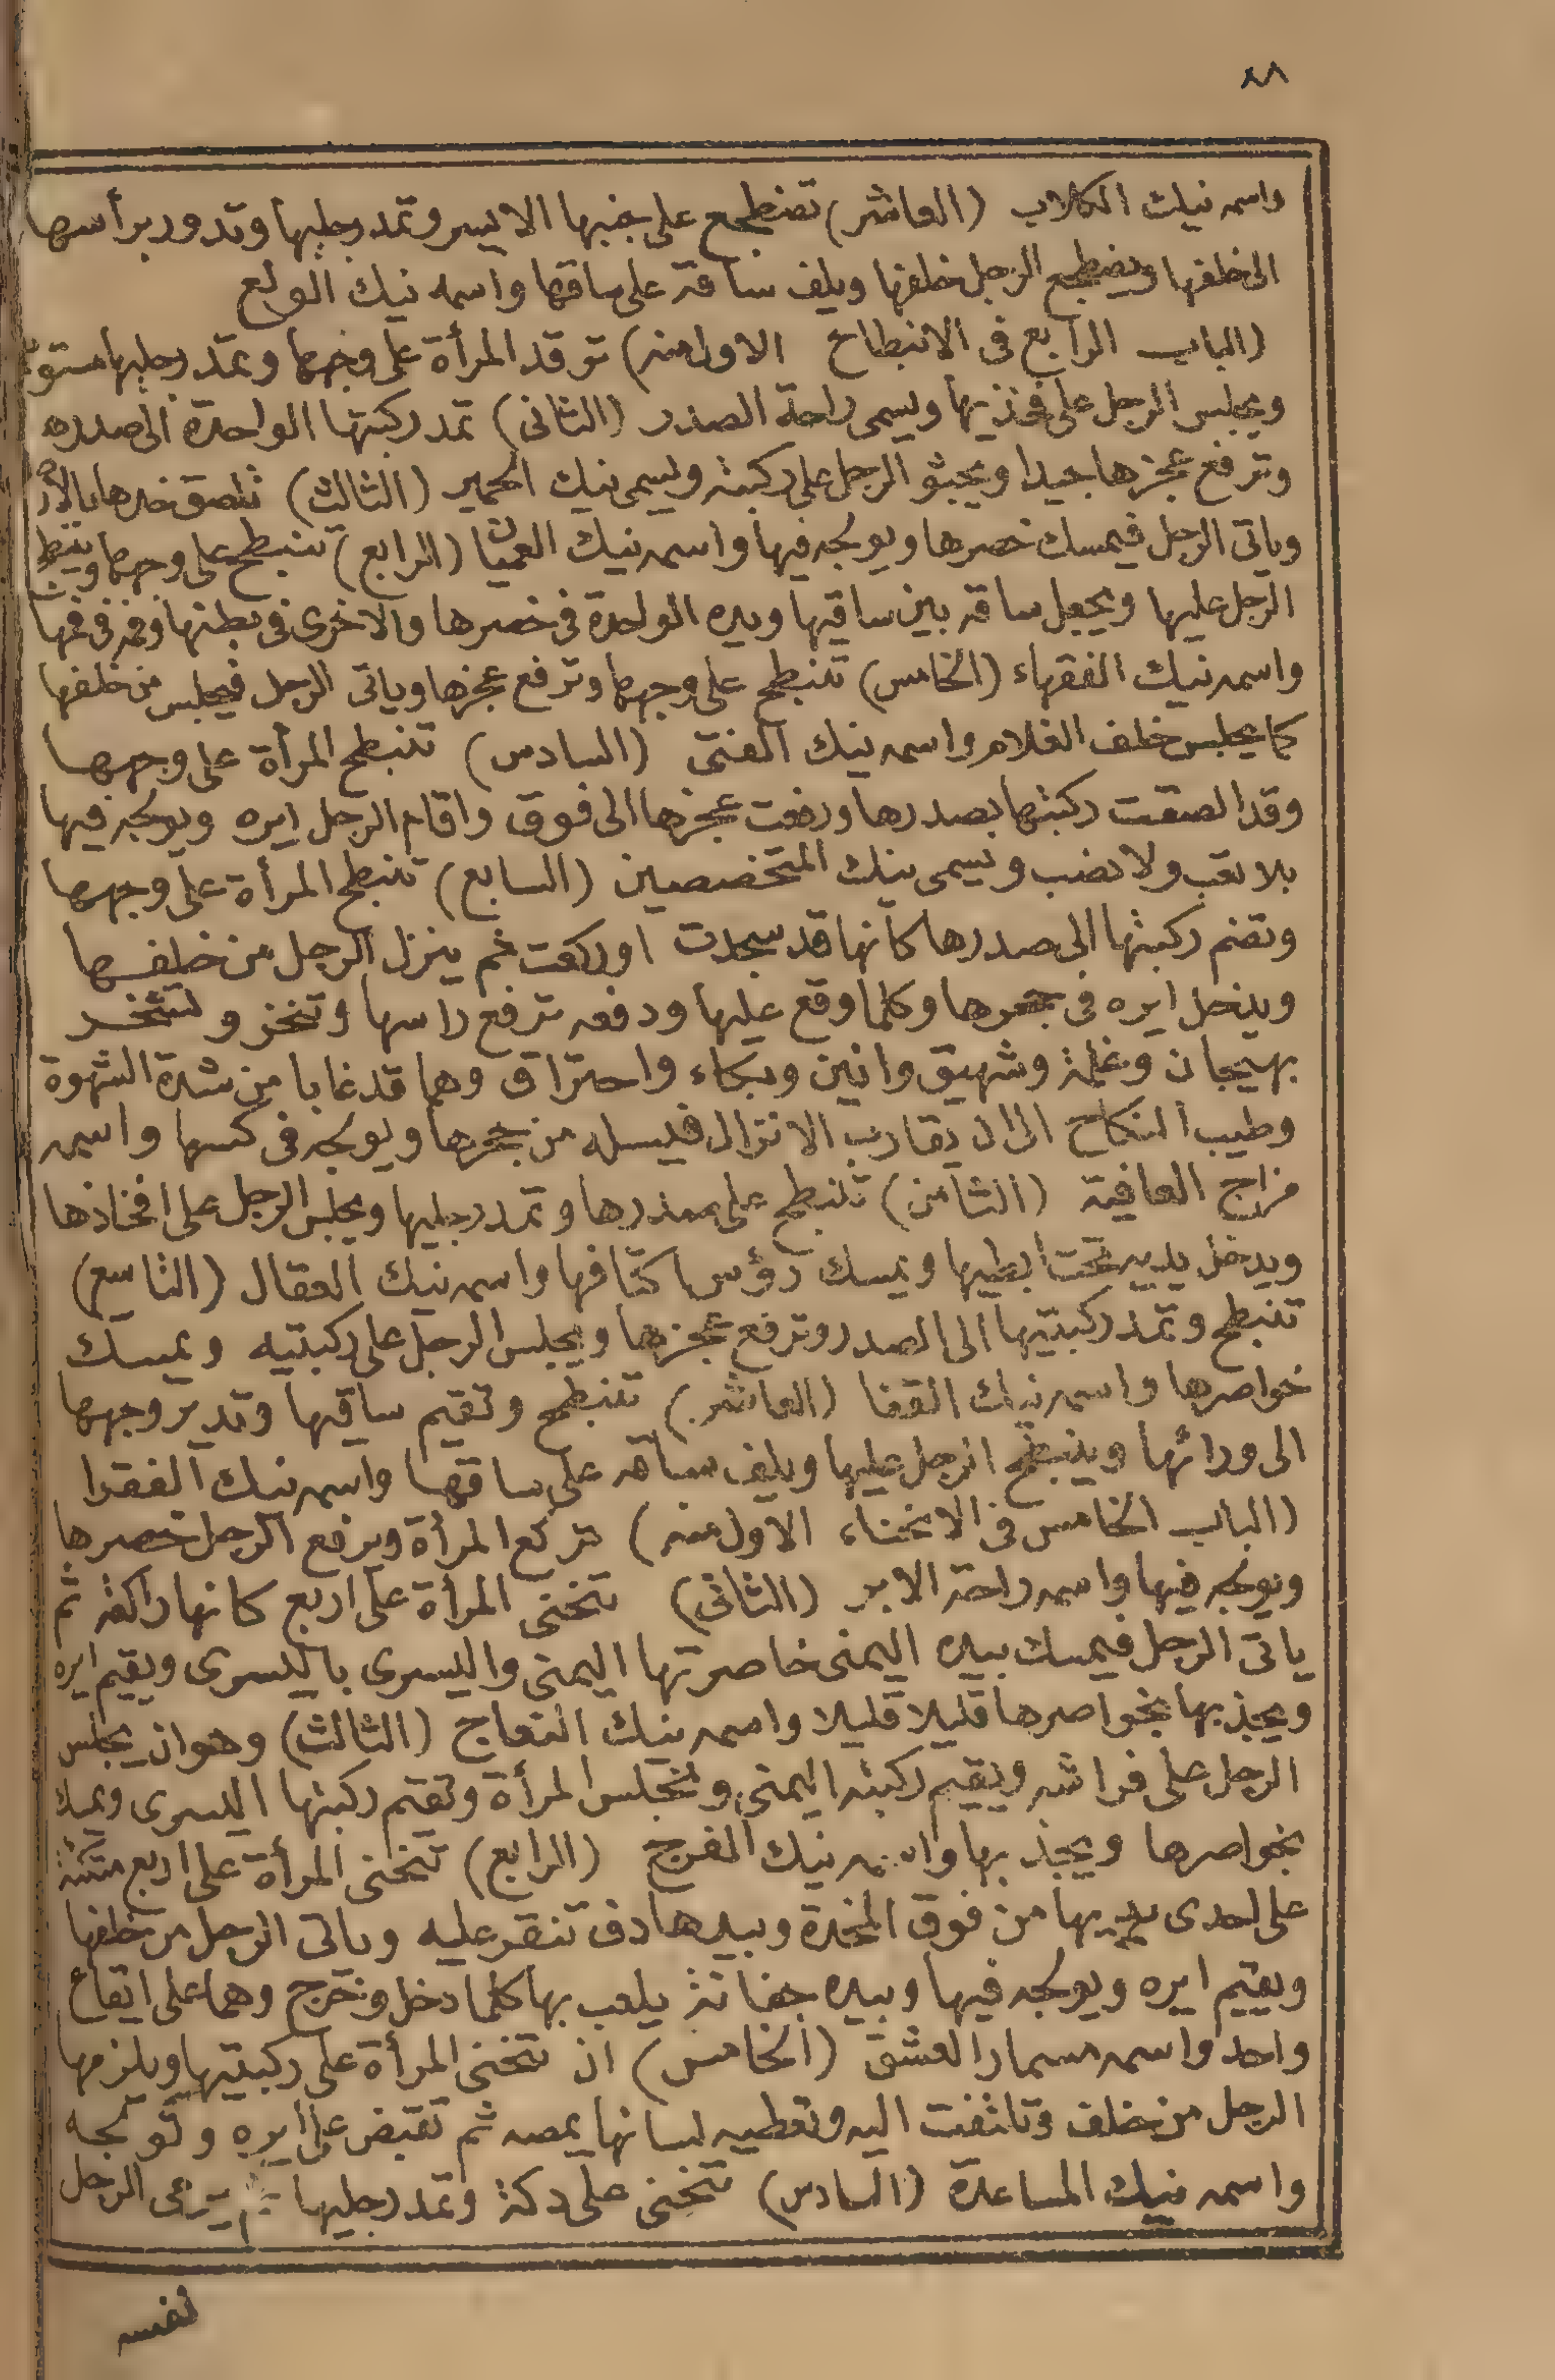 ٨٨
واسمه نيك الكلاب (العاشر) تضطجع على جنبها الايسر وتمد رجليها وتدور برأسها
الى خلفها ويضطجع الرجل خلفها ويلف ساقه على ساقها واسمه نيك الولع
(الباب الرابع فى الانبطاح الاول منه) ترقد المرأة على وجهها وتمد رجليها مستوية
ويجلس الرجل على فخذيها ويسمى راحة الصدر (الثانى) تمد ركبتها الواحدة الى صدره
وترفع عجزها جيدا ويجثو الرجل على ركبته ويسمى نيك الحمير (الثالث) تلصق خدها بالارض
وياتى الرجل فيمسك خصرها ويولجه فيها واسمه نيك العميان (الرابع) تنبطح على وجهها وينبطح
الرجل عليها ويجعل ساقه بين ساقيها ويده الواحدة فى خصرها والاخرى فى بطنها وفمه فى فمها
واسمه نيك الفقهاء (الخامس) تنبطح على وجهها وترفع عجزها وياتى الرجل فيجلس من خلفها
كما يجلس خلف الغلام واسمه نيك الفتى (السادس) تنبطح المرأة على وجهها
وقد الصقت ركبتها بصدرها ورفعت عجزها الى فوق واقام الرجل ايره ويولجه فيها
بلا تعب ولا نصب ويسمى نيك المتخصصين (السابع) تنبطح المرأة على وجهها
وتضم ركبتها الى صدرها كأنها قد سجدت او ركعت ثم ينزل الرجل من خلفها
ويدخل ايره فى جحرها وكلما وقع عليها ودفعه ترفع راسها وتنخز وتنخر
بهيجان وغلمة وشهيق وانين وبكاء واحتراق وهما قد غابا من شدة الشهوة
وطيب النكاح الى ان يقارب الانزال فيسله من جحرها ويولجه فى كسها واسمه
مزاج العافية (الثامن) تنبطح على صدرها وتمد رجليها ويجلس الرجل على افخاذها
ويدخل يديه تحت ابطيها ويمسك رؤس اكتافها واسمه نيك العقال (التاسع)
تنبطح وتمد ركبتيها الى الصدر وترفع عجزها ويجلس الرجل على ركبتيه ويمسك
خواصرها واسمه نيك القفا (العاشر) تنبطح وتقيم ساقها وتدير وجهها
الى ورائها وينبطح الرجل عليها ويلف ساقه على ساقها واسمه نيك الفقرا
(الباب الخامس فى الانحناء الاول منه) تركع المرأة ويرفع الرجل خصرها
ويولجه فيها واسمه راحة الاير (الثانى) تنحنى المرأة على اربع كانها راكعة ثم
ياتى الرجل فيمسك بيده اليمنى خاصرتها اليمنى واليسرى باليسرى ويقيم ايره
ويجذبها بخواصرها قليلا قليلا واسمه نيك النعاج (الثالث) وهو ان يجلس
الرجل على فراشه ويقيم ركبته اليمنى وتجلس المرأة وتقيم ركبتها اليسرى ويمسك
بخواصرها ويجذبها واسمه نيك المفرج (الرابع) تنحنى المرأة على اربع متكئة
على احدى يديها من فوق المخدة وبيدها دف تنقر عليه وياتى الرجل من خلفها
ويقيم ايره ويولجه فيها وبيده جفانة يلعب بها كلما دخل وخرج وهما على ايقاع
واحد واسمه مسمار العشق (الخامس) ان تنحنى المرأة على ركبتيها ويلزمها
الرجل من خلف وتلتفت اليه وتعطيه لسانها يمصه ثم تقبض على ايره وتولجه
واسمه نيك المساعدة (السادس) تنحنى على دكة وتمد رجليها ثم يرمى الرجل
نفسه